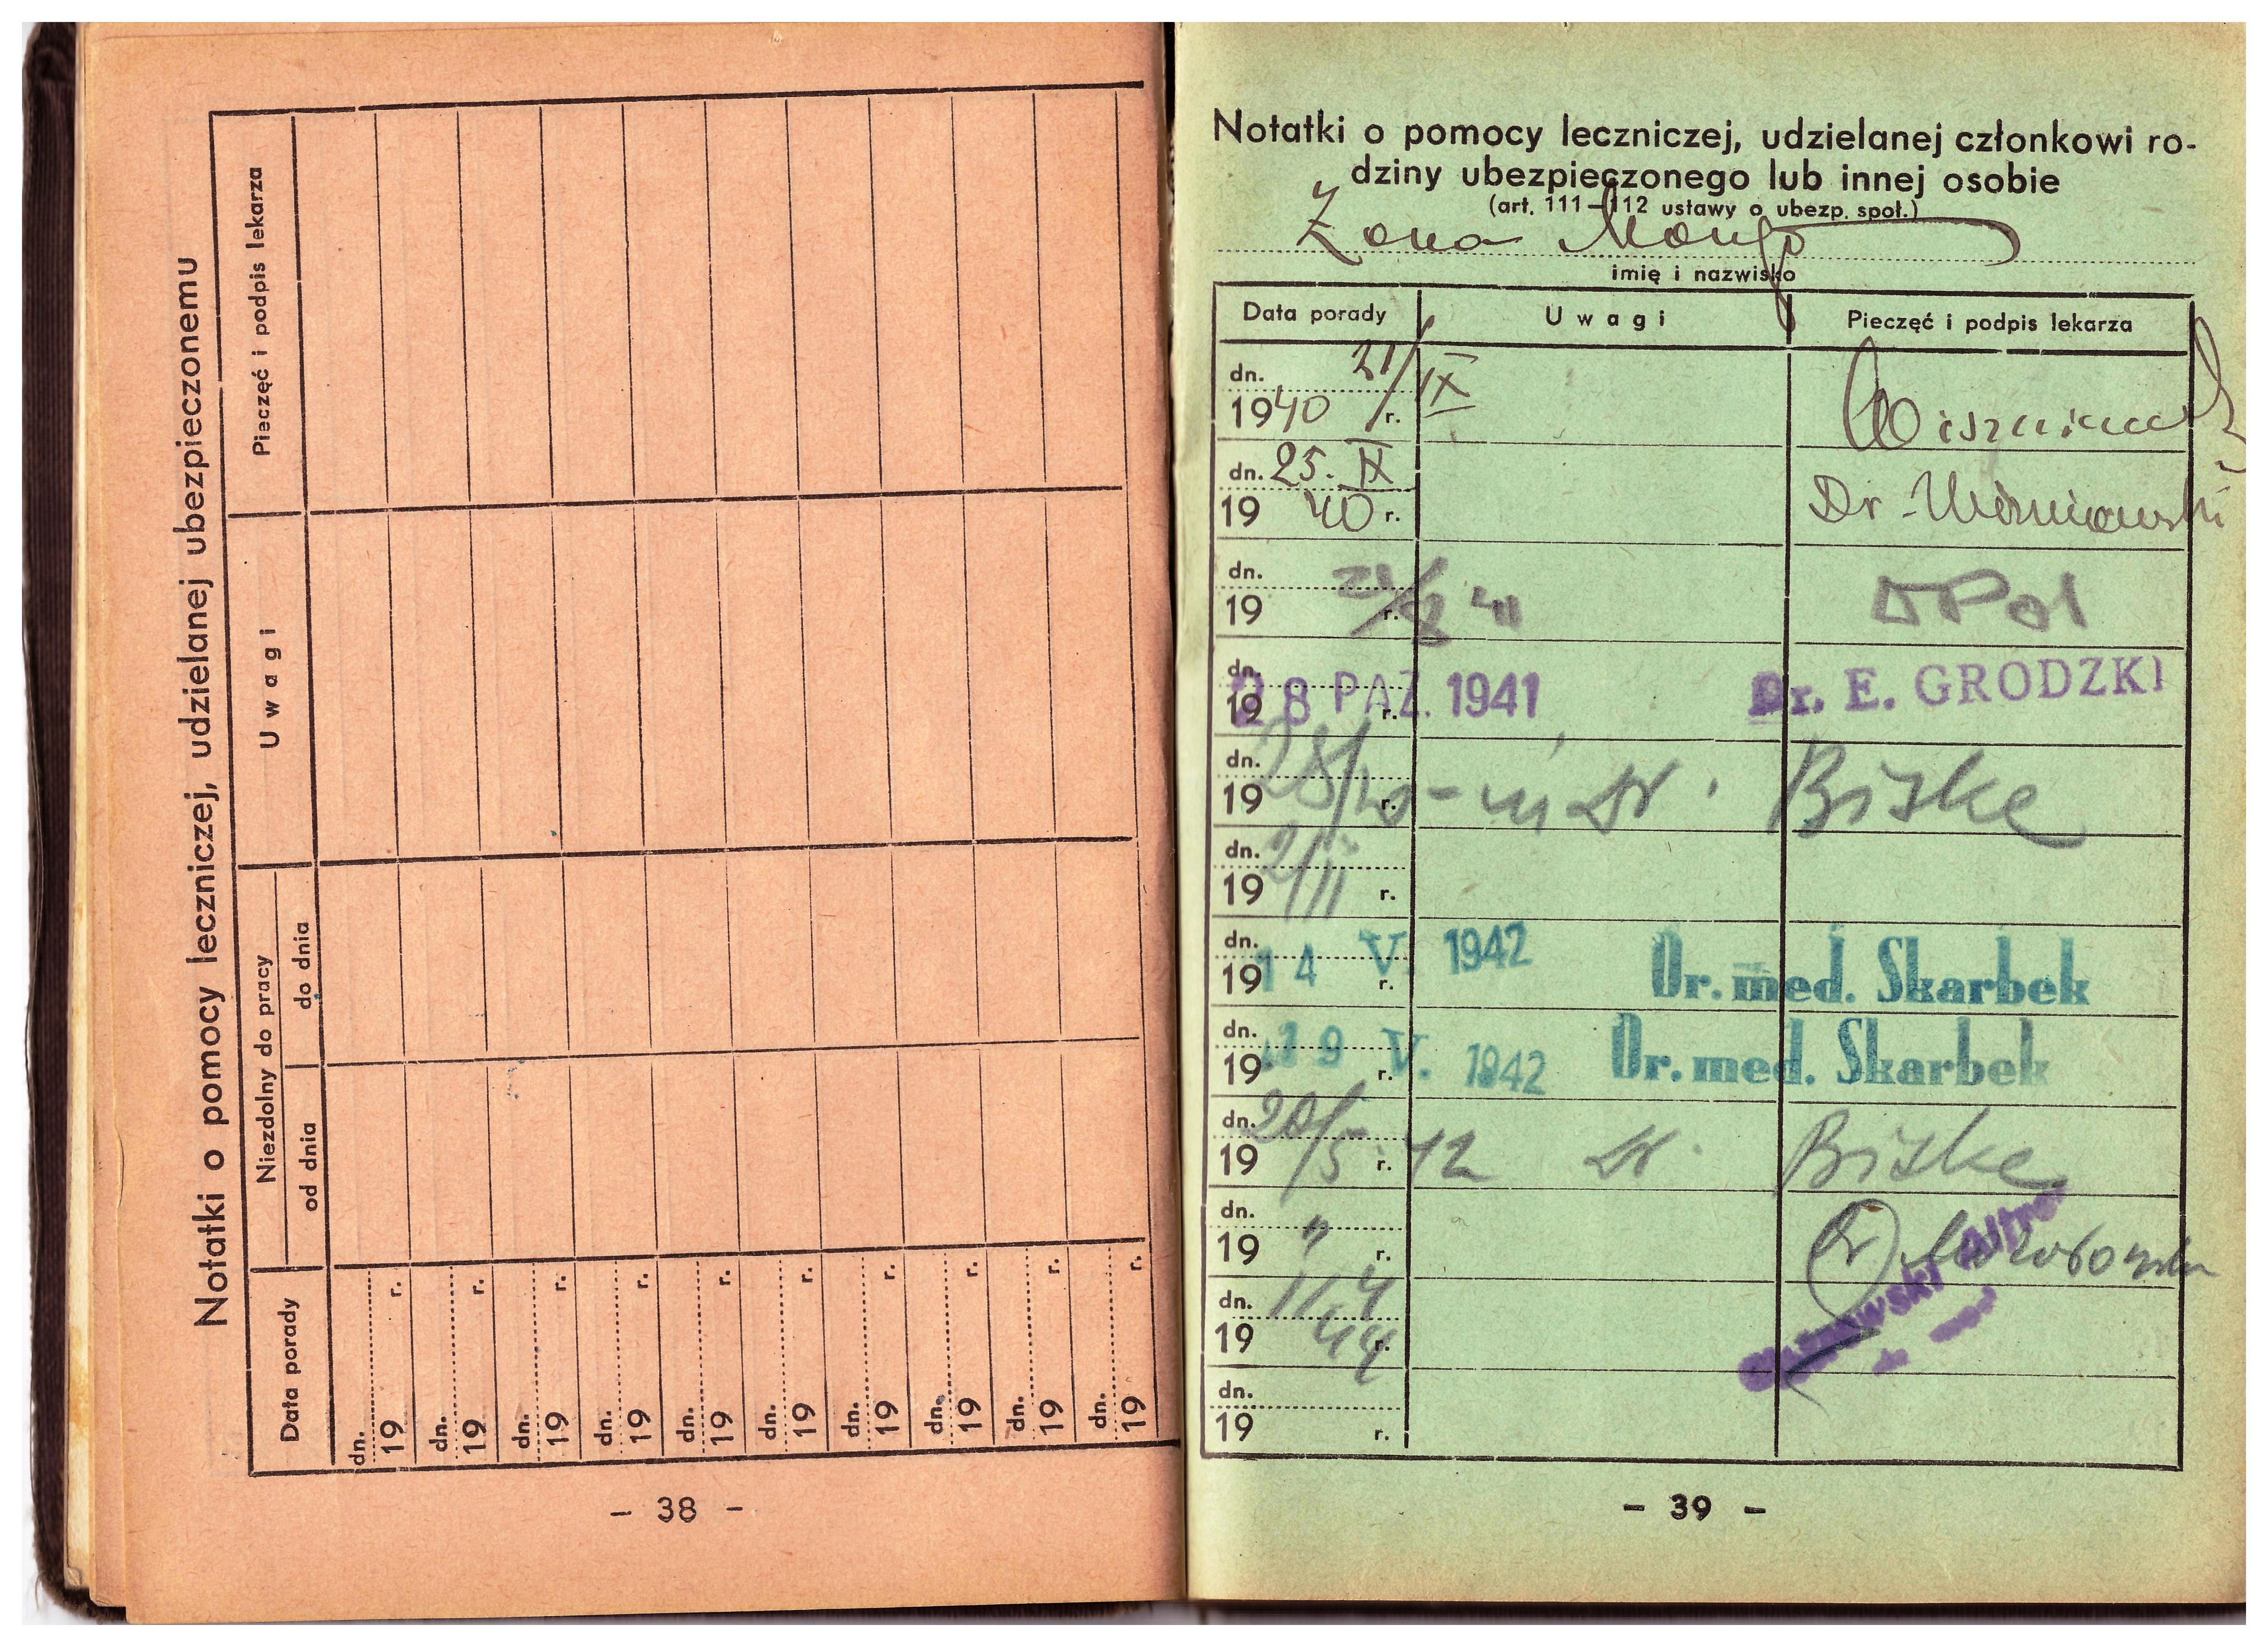 Notatki o pomocy leczniczej, udzielanej ubezpieczonemu
Data porady
Niezdolny do pracy
od dnia
do dnia
Uwagi
Pieczęć i podpis lekarza
dn.
19 r.
dn.
19 r.
dn.
19 r.
dn.
19 r.
dn.
19 r.
dn.
19 r.
dn.
19 r.
dn.
19 r.
dn.
19 r.
dn.
19 r.
– 38 –
Notatki o pomocy leczniczej, udzielanej członkowi ro-
dziny ubezpieczonego lub innej osobie
(art. 111—112 ustawy o ubezp. społ.)
Żona
imię i nazwisko
Data porady Uwagi Pieczęć i podpis lekarza
dn. 21/IX
1940 r.
dn. 25. IX
19 40 r. Dr. Wiśniowski
dn.
19 r. 41
dn.
19 r.
28 PAŹ. 1941 Dr. E. GRODZKI
dn. 28/10
19 r. Dr. Biske
dn. 2/11
19 r.
dn.
19 r.
14 V. 1942 Dr. med. Skarbek
dn.
19 r.
19 V. 1942 Dr. med. Skarbek
dn. 20/5 42 Dr. Biske
19 r.
dn. "
19 r. Dr
dn. 1/4
19 44 r.
dn.
19 r.
– 39 –